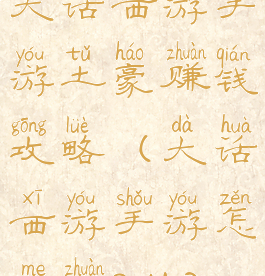 大话西游手
yóu tǔ háo zhuàn qián
游土豪赚钱
gōng lüè dà huà
攻略（大话
xī yóu shǒu yóu zěn
西游手游怎
me zhuàn